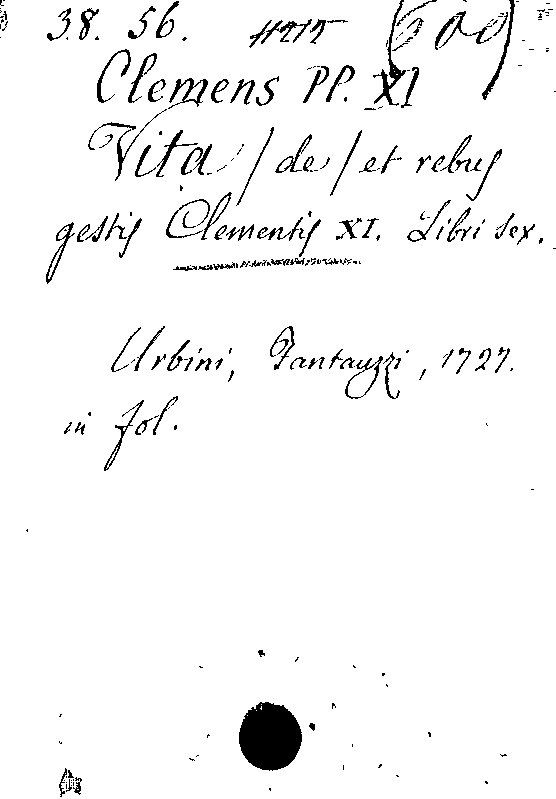 38. 56. 11215 600
Clemens PP. XI
Vita / de / et rebus
gestis Clementis XI. Libri sex.
Urbini, Fantauzzi, 1727.
in fol.